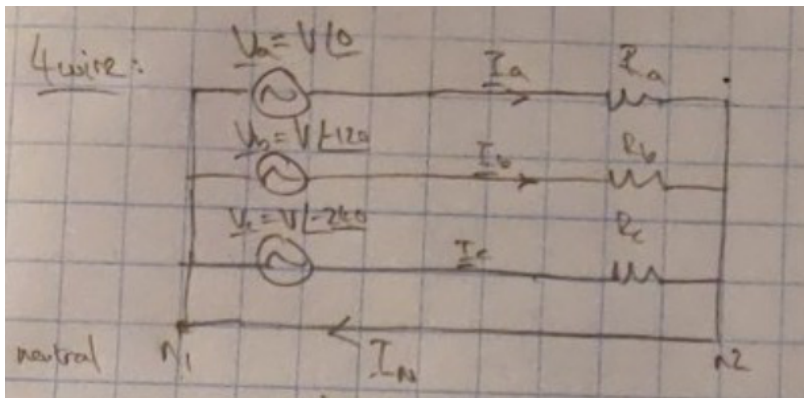 4 wire:
Va = V∠0
Ia
Ra
Vb = V∠-120
Ib
Rb
Vc = V∠-240
Ic
Rc
neutral
n1
IN
n2